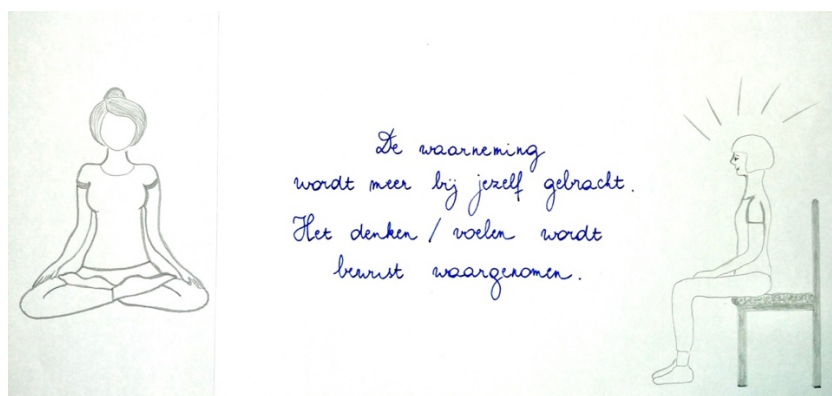 De waarneming
wordt meer bij jezelf gebracht.
Het denken / voelen wordt
bewust waargenomen.